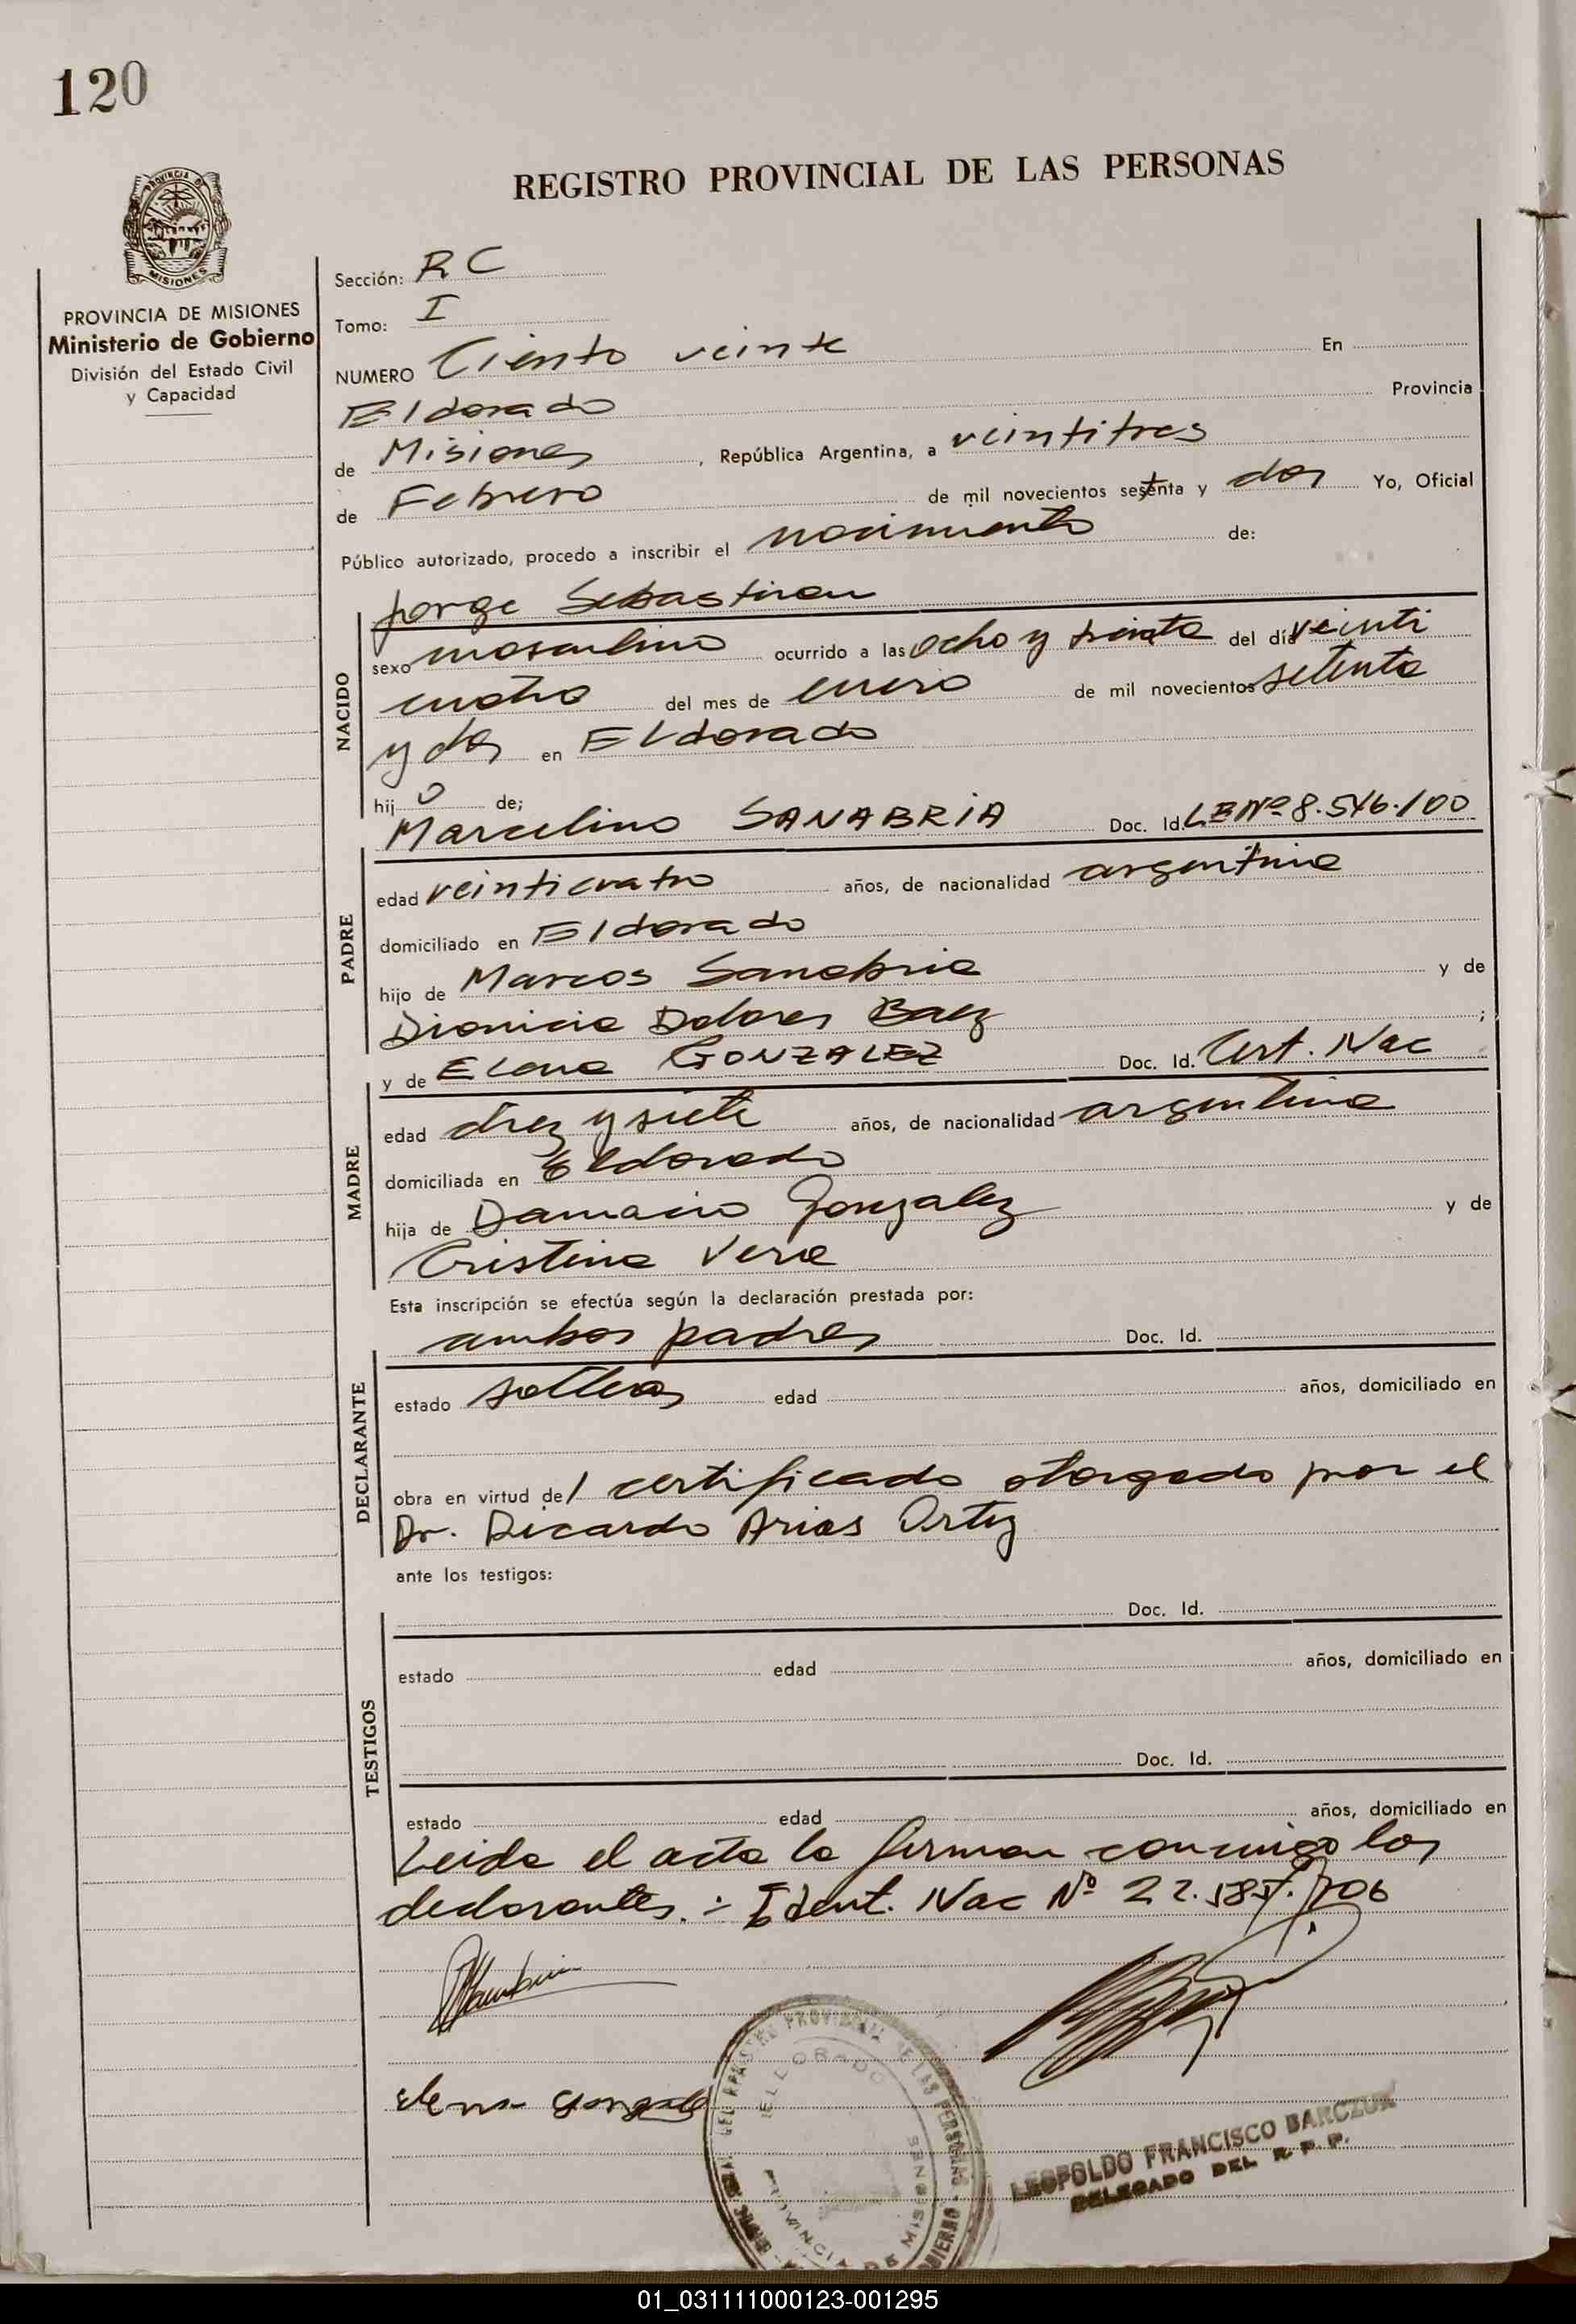 120
REGISTRO PROVINCIAL DE LAS PERSONAS
PROVINCIA DE MISIONES
MISIONES
PROVINCIA DE MISIONES
Ministerio de Gobierno
División del Estado Civil
y Capacidad
Sección: R C
Tomo: I
NUMERO Ciento veinte En
Eldorado Provincia
de Misiones, República Argentina, a veintitres
de Febrero de mil novecientos setenta y dos Yo, Oficial
Público autorizado, procedo a inscribir el nacimiento de:
Jorge Sebastian
NACIDO
sexo masculino ocurrido a las ocho y treinta del día veinti
cuatro del mes de enero de mil novecientos setenta
y dos en Eldorado
hij o de;
Marcelino SANABRIA Doc. Id. LE Nº 8.546.100
PADRE
edad veinticuatro años, de nacionalidad argentina
domiciliado en Eldorado
hijo de Marcos Sanabria y de
Dionicia Dolores Baez ;
y de Elena GONZALEZ Doc. Id. Cert. Nac
MADRE
edad diez y siete años, de nacionalidad argentina
domiciliada en Eldorado
hija de Damacio Gonzalez y de
Cristina Vera
Esta inscripción se efectúa según la declaración prestada por:
ambos padres Doc. Id.
DECLARANTE
estado solteros edad años, domiciliado en
obra en virtud del certificado otorgado por el
Dr. Ricardo Arias Ortiz
ante los testigos:
Doc. Id.
TESTIGOS
estado edad años, domiciliado en
Doc. Id.
estado edad años, domiciliado en
Leida el acta la firman conmigo los
declarantes. Ident. Nac Nº 22.
MSanabria
elena Gonzalez
REGISTRO PROVINCIAL DE LAS PERSONAS
ELDORADO
PROVINCIA DE MISIONES
LEOPOLDO FRANCISCO BARCZUK
DELEGADO DEL R. P. P.
01_031111000123-001295